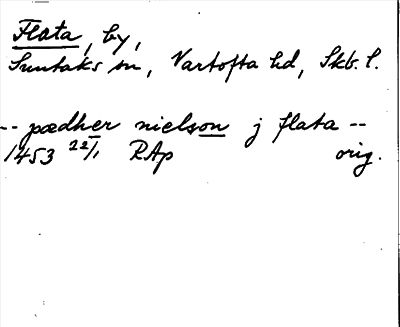 Flata, by,
Suntaks sn, Vartofta hd, Skb. l.
-- pædher nielson j flata --
1453 22/1 RAp orig.